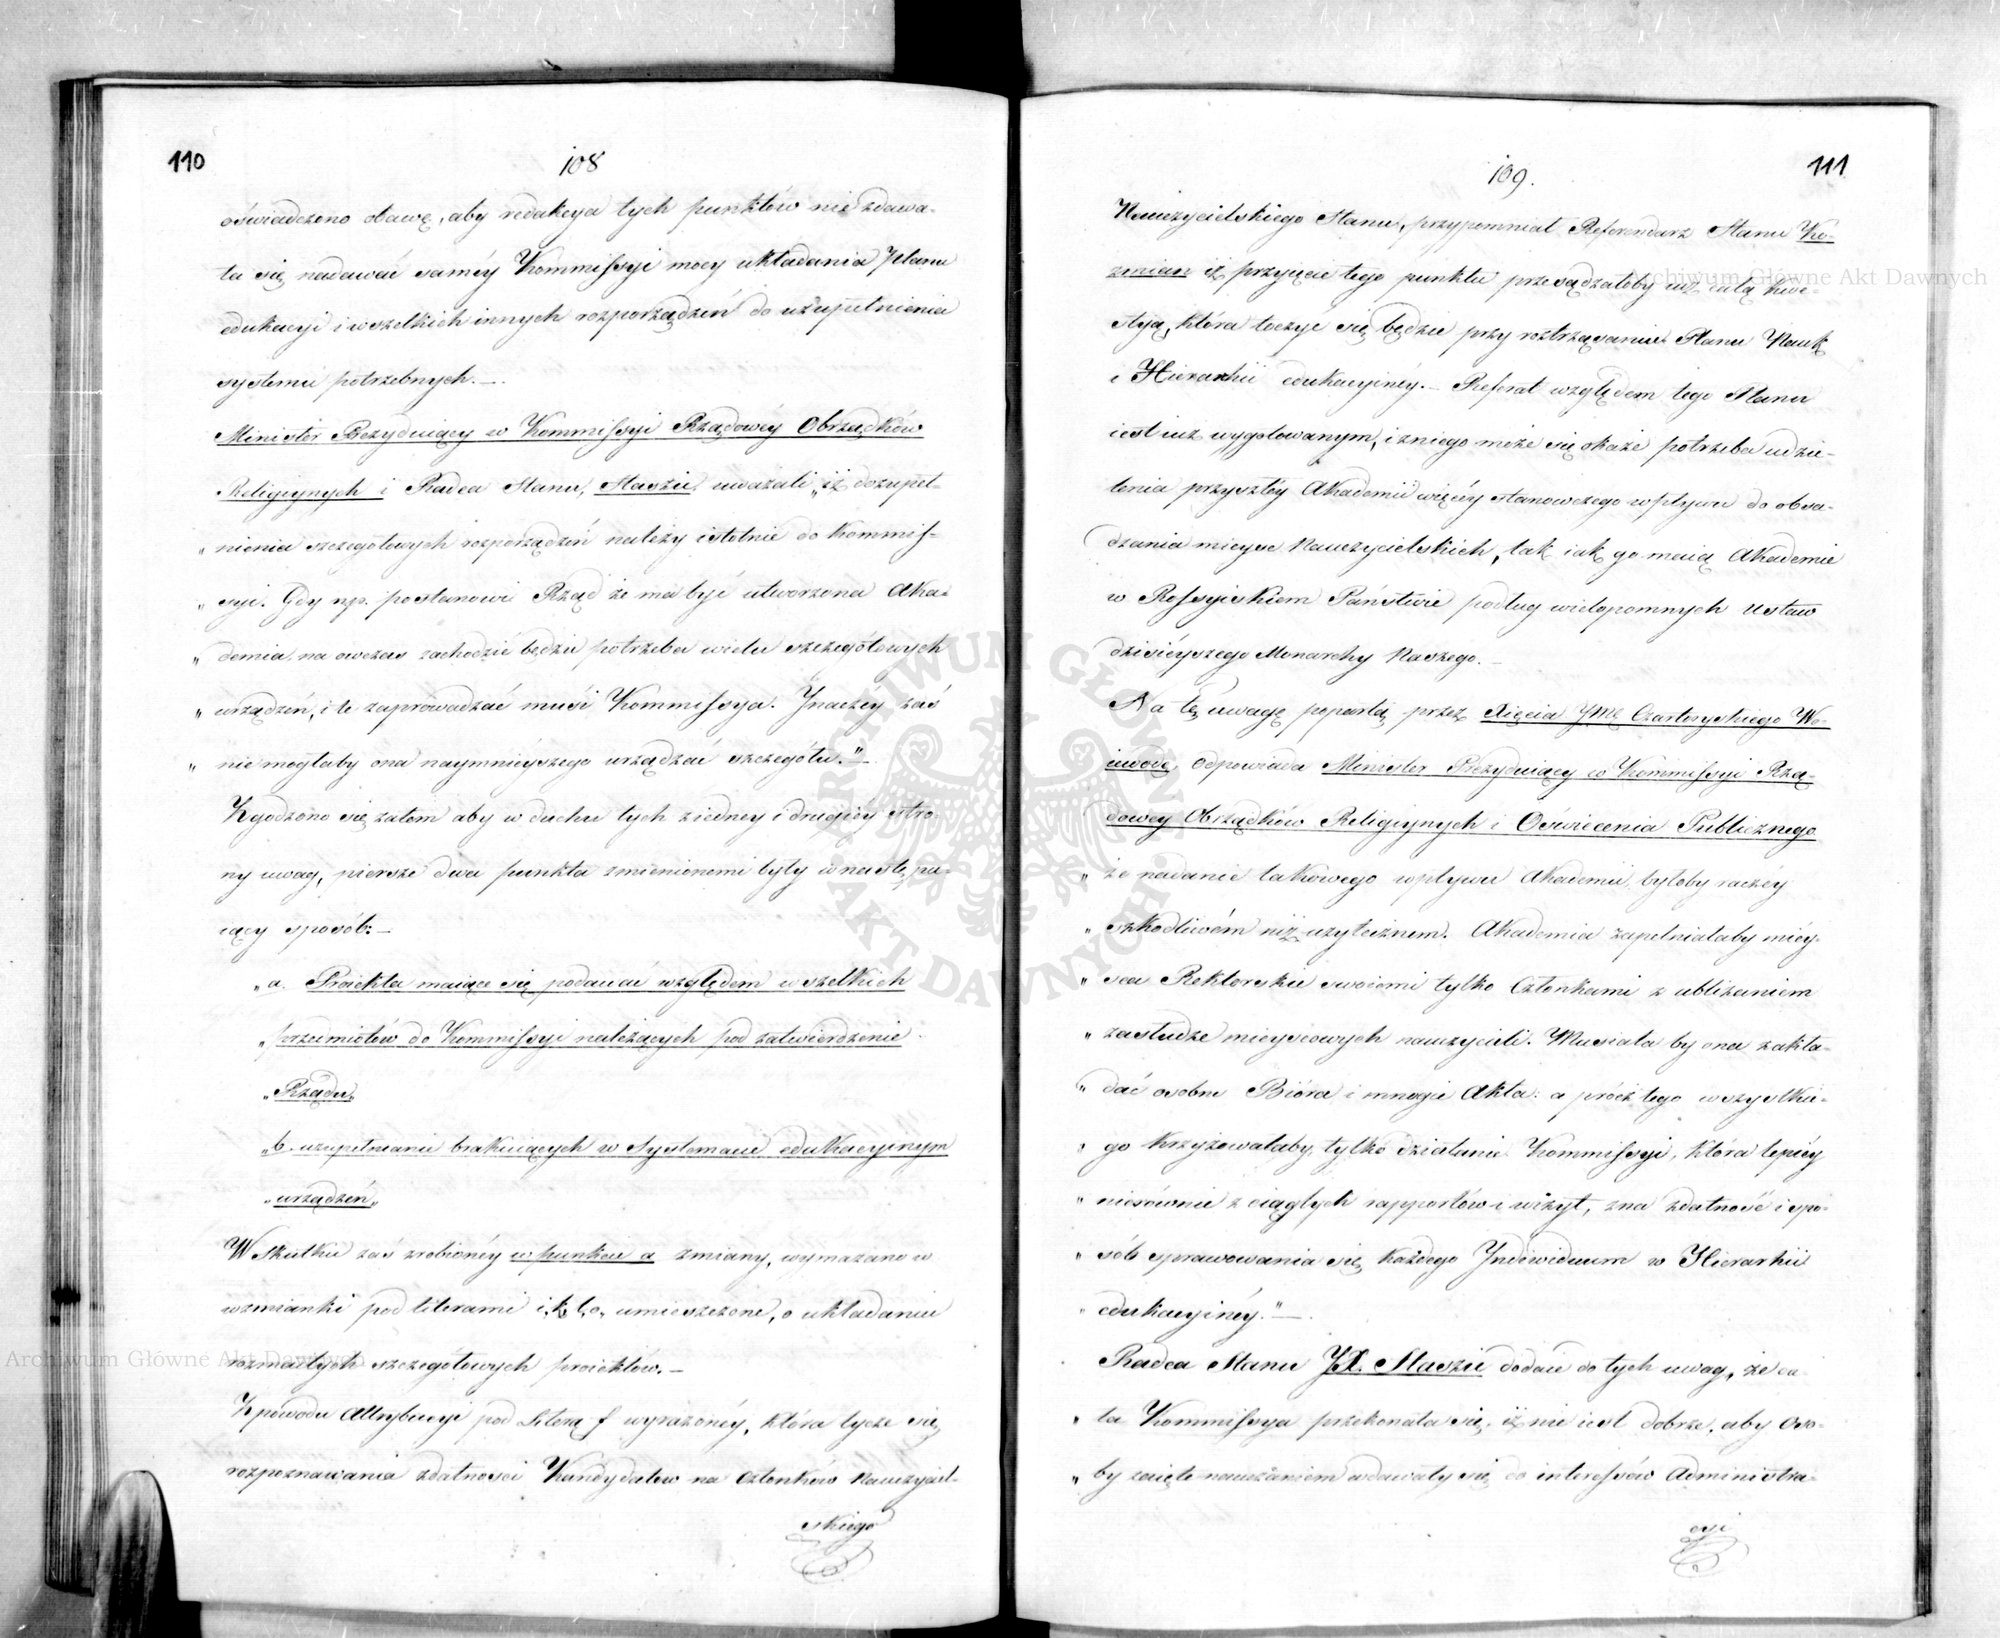 110
108
oświadczono obawę, aby redakcya tych punktów nie zdawa-
ła się nadawać saméy Kommissyi mocy układania Planu
edukacyi i wszelkich innych rozporządzeń do uzupełnienia
systemu potrzebnych.—
Minister Prezyduiący w Kommissyi Rządowéy Obrządków
Religiynych i Radca Stanu, Staszic uważali „iż dozupeł-
„ nienia szczegołowych rozporządzeń należy istotnie do Kommis-
„ syi. Gdy np. postanowi Rząd że ma być utworzona Aka-
„ demia, na owczas zachodzić będzie potrzeba wielu szczegołowych
„ urządzeń, i te zaprowadzać musi Kommissya. Jnaczéy zaś
„ nie mogłaby ona naymnieyszego urządzać szczegółu.”—
Zgodzono się zatem aby w duchu tych z iedney i drugiéy stro-
ny uwag, piersze dwa punkta zmienionemi były w nastę pu-
iący sposób:—
„a. Proiekta maiące się podawać względem wszelkich
„przedmiotów do Kommissyi należących pod zatwierdzenie
„Rządu„
„b. uzupełnianie brakuiących w Systemacie edukacyinym
„urządzeń„
W skutku zaś zrobionéy w punkcie a zmiany, wymazano w
wzmianki pod literami i, k, l, o, umieszczone, o układaniu
rozmaitych szczegołowych proiektów.—
Z powodu Attrybucyi pod Literą f wyrażonéy, która tycze się
rozpoznawania zdatności Kandydatow na Członków Nauczyciel-
skiego
109.
111
Nauczycielskiego Stanu, przypomniał Referendarz Stanu Ko-
zmian iż przyięcie tego punktu przesądzałoby iuż całą kwe-
styą, która toczyć się będzie przy roztrząsaniu Planu Nauk
i Hierarhii edukacyinéy.— Referat względem tego Planu
iest iuż wygotowanym, i z niego może się okaże potrzeba udzie-
lenia przyszłéy Akademii więcéy stanowczego wpływu do obsa-
dzania mieysc Nauczycielskich, tak iak go maią Akademie
w Rossyiskiem Państwie podług wiekopomnych Ustaw
dzisiéyszego Monarchy Naszego.—
Na tę uwagę popartą przez Xięcia JMę Czartoryskiego Wo-
iewodę, odpowiada Minister Prezyduiący w Kommissyi Rzą-
dowey Obrządków Religiynych i Oświecenia Publicznego
„ że nadanie takowego wpływu Akademii, byłoby raczéy
„ szkodliwém niż użytecznem. Akademia zapełniałaby miéy-
„ sca Rektorskie swoiemi tylko Członkami z ubliżeniem
„ zasłudze mieyscowych nauczycieli. Musiała by ona zakła-
„ dać osobne Bióra i mnogie Akta: a prócz tego wszystkie-
„ go krzyżowałaby tylko działanie Kommissyi, która lepiéy
„ nierównie z ciągłych rapportów i wizyt, zna zdatność i spo-
„ sób sprawowania się każdego Jndiwiduum w Hierarhii
„ edukacyinéy.”—
Radca Stanu JX. Staszic dodaie do tych uwag, że ca-
„ ła Kommissya przekonała się, iż nie iest dobrze, aby Oso-
„ by zaięte nauczaniem wdawały się do interessów Administra-
cyi
Archiwum Główne Akt Dawnych
Archiwum Główne Akt Dawnych
ARCHIWUM GŁÓWNE AKT DAWNYCH